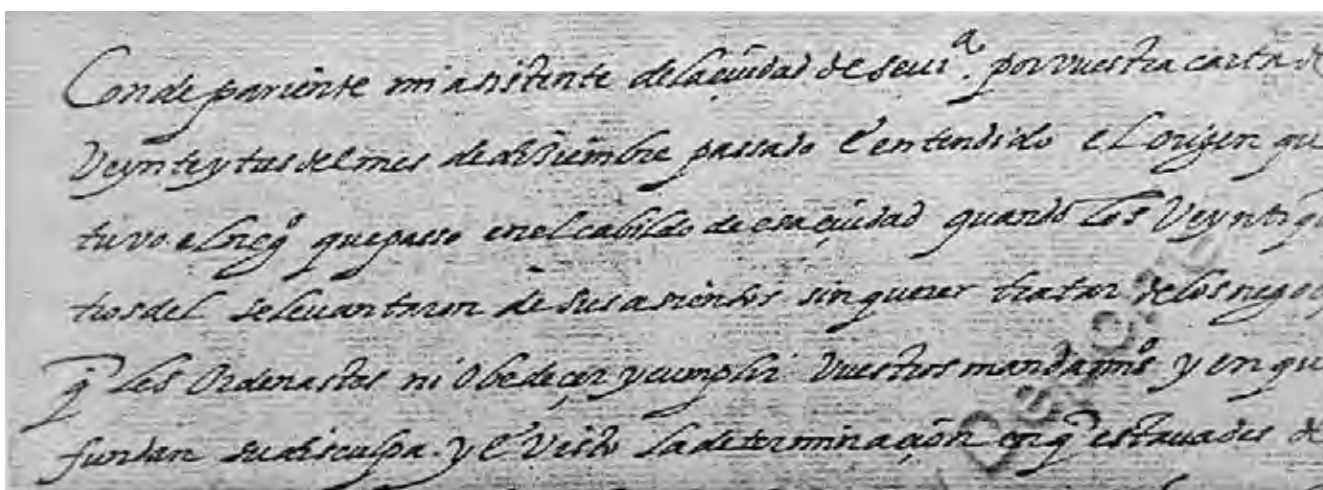 Conde pariente mi asistente de la çiudad de seuiª. por vuestra carta de
Veynte y tres del mes de diziembre passado e entendido el origen que
tuvo el negº que passo en el cabildo de esa çiudad quando los Veyntiqua
tros del se leuantaron de sus asientos sin querer tratar de los negoç
q̃ les Ordenastes ni Obedeçer y cumplir Vuestros mandamiºs y en que
fundan su disculpa. y e Visto la determinaçion en q̃ estauades de